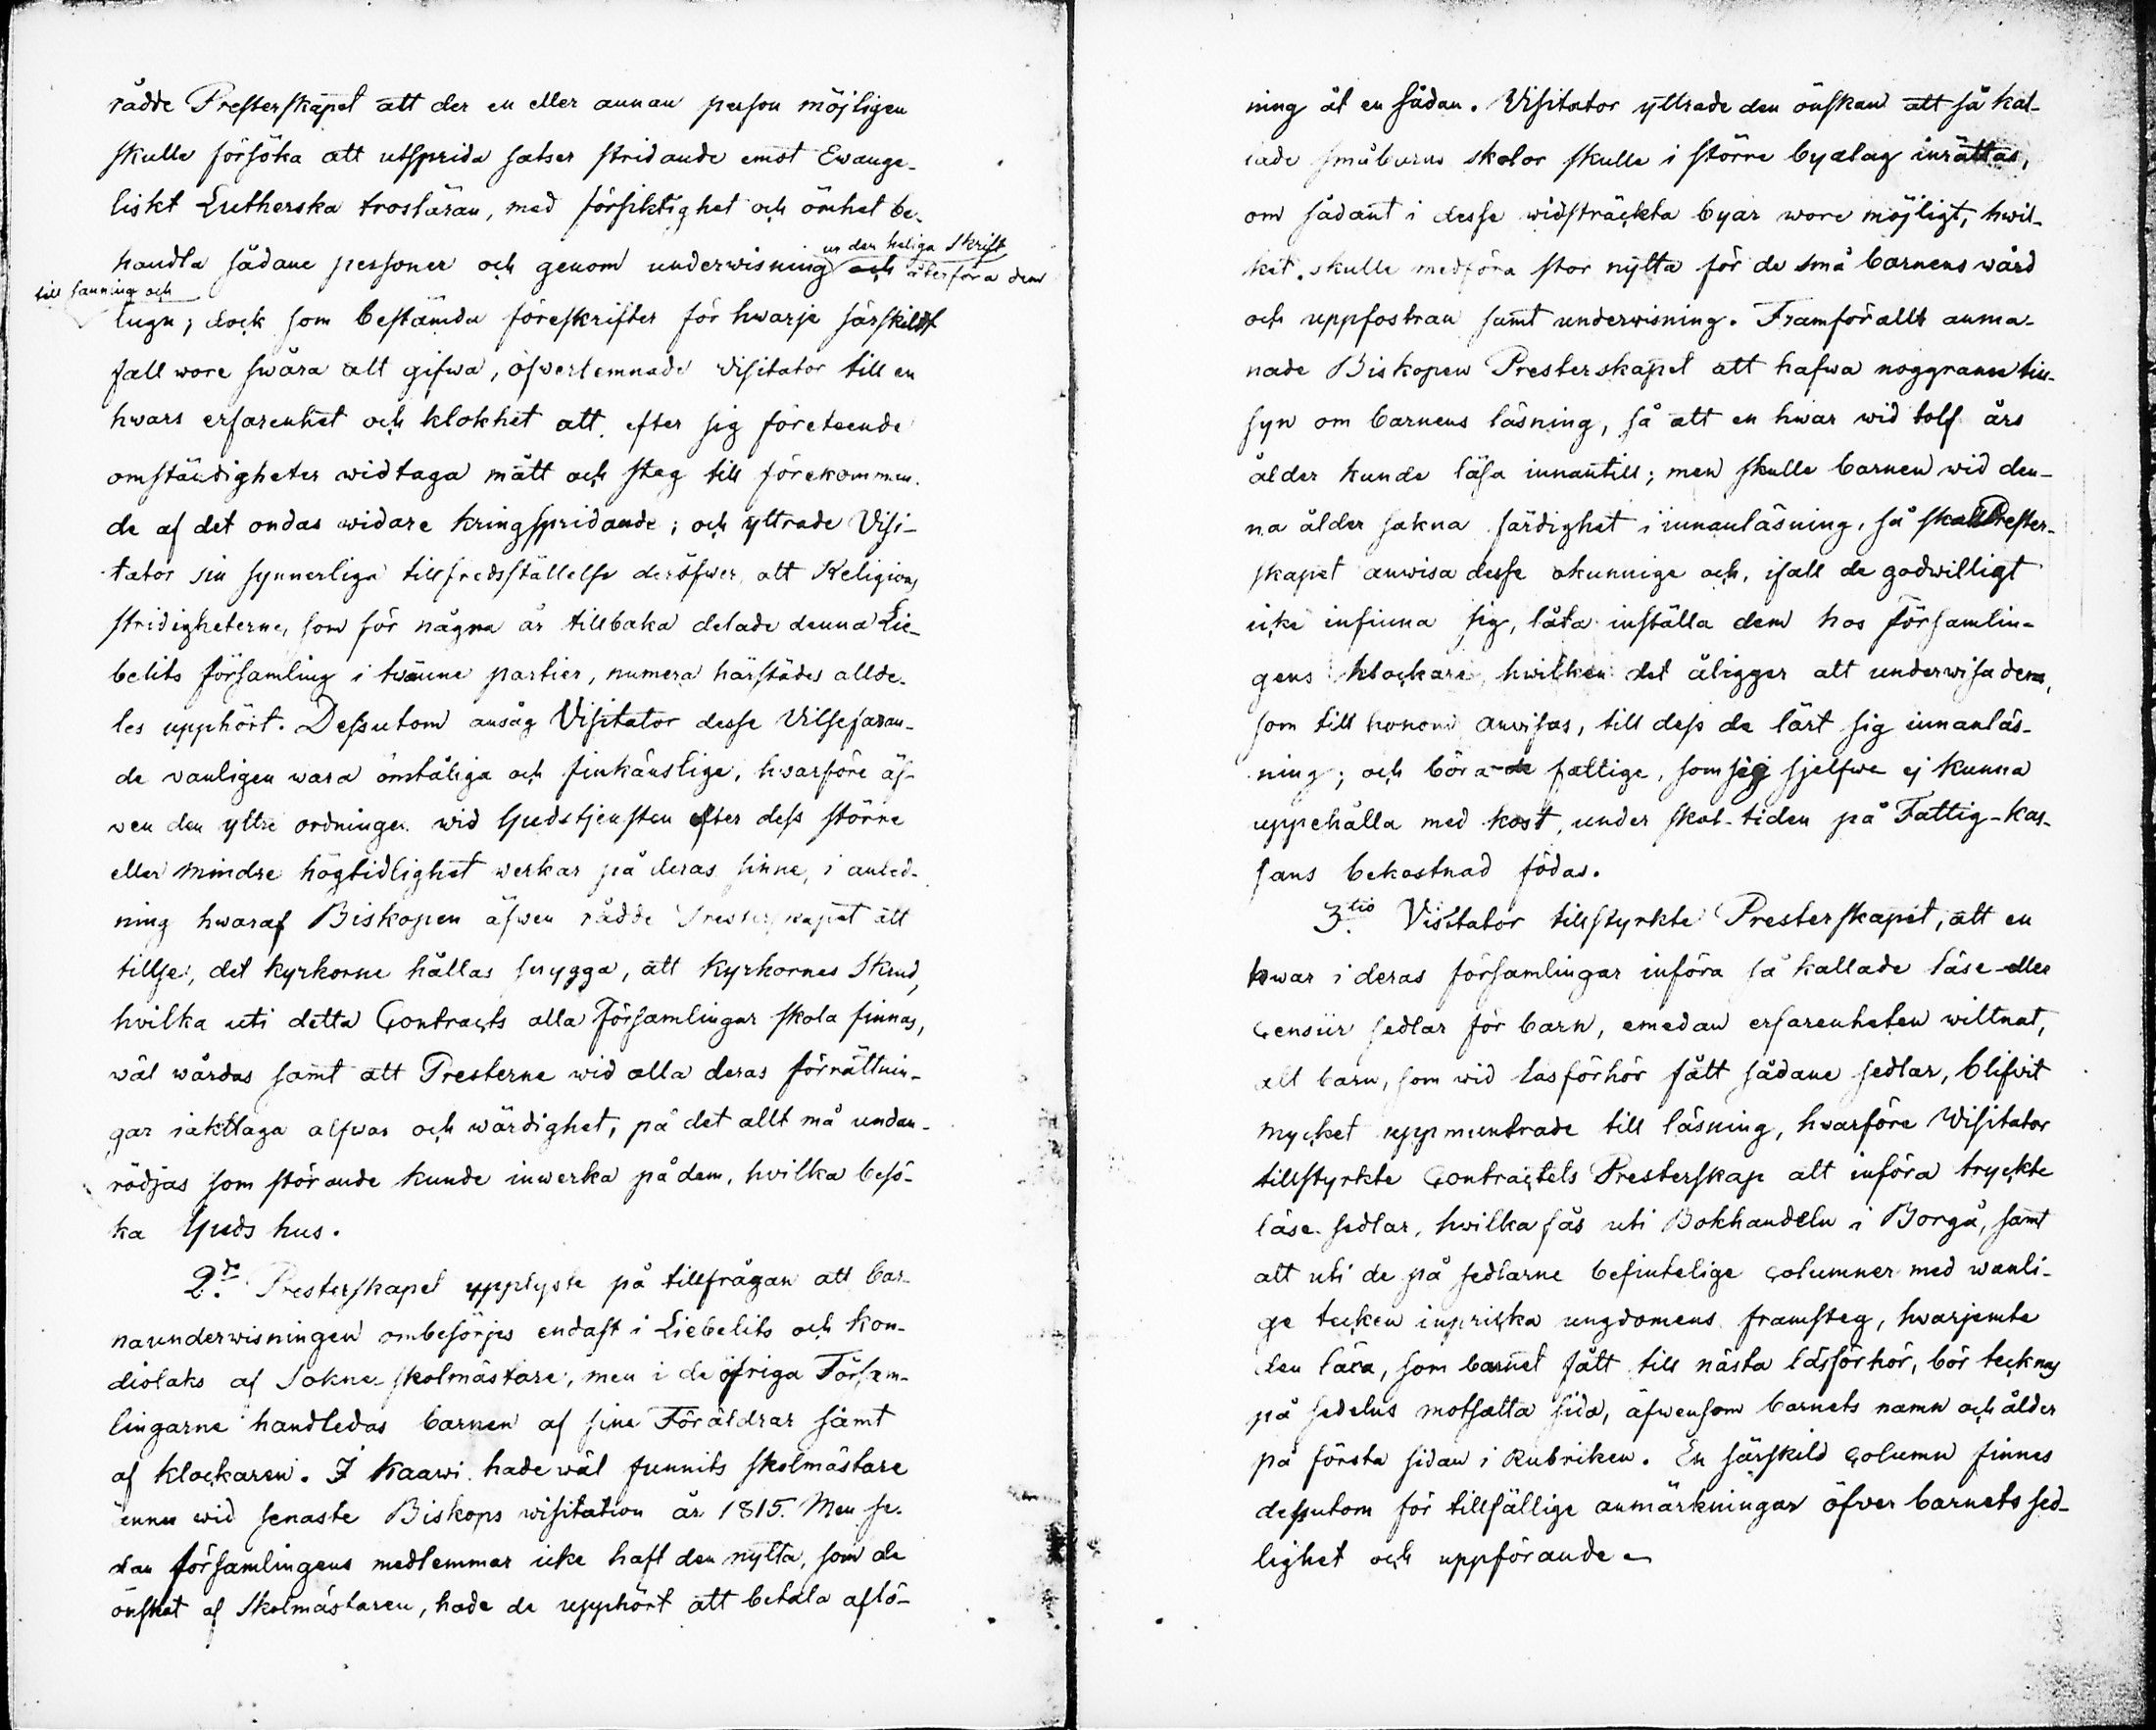 rådde Presterskapet att der en eller annan person möjligen
skulle försöka att utsprida satser stridande emot Evange-
liskt Lutherska trosläran, med försiktighet och ömhet be-
handla sådane personer och genom underwisning ur den heliga Skrift och återföra dem
till sanning och
lugn; dock som bestämda föreskrifter för hwarje särskildt
fall wore swåra att gifwa, öfverlemnade Visitator till en
hwars erfarenhet och klokhet att efter sig företeende
omständigheter widtaga mått och steg till förekomman-
de af det ondas widare kringspridande; och yttrade Visi-
tator sin synnerliga tillfredsställelse deröfwer, att Religions
stridigheterne, som för några år tillbaka delade denna Lie-
belits församling i twänne partier, numera härstädes allde-
les upphört. Dessutom ansåg Visitator desse Vilsefaran-
de vanligen wara ömtåliga och finkänslige, hvarföre äf-
ven den yttre ordningen wid Gudstjensten efter dess större
eller mindre högtidlighet werkar på deras sinne, i anled-
ning hwaraf Biskopen äfwen rådde Presterskapet att
tillse, det kyrkorne hållas snygga, att Kyrkornes Skrud,
hvilka uti detta Contracts alla Församlingar skola finnas,
wäl wårdas samt att Presterne wid alla deras förrättnin-
gar iakttaga alfwar och wärdighet, på det allt må undan-
rödjas som störande kunde inwerka på dem, hvilka besö-
ka Guds hus.
2do. Presterskapet upplyste på tillfrågan att bar-
naunderwisningen ombesörjes endast i Liebelits och Kon-
diolaks af Sokne-skolmästare, men i de öfriga Försam-
lingarne handledas barnen af sine Föräldrar samt
af klockaren. I Kaawi hade wäl funnits skolmästare
ännu wid senaste Biskops wisitation år 1815. Men se-
dan församlingens medlemmar icke haft den nytta, som de
önskat af Skolmästaren, hade de upphört att betala aflö-
ning åt en sådan. Visitator yttrade den önskan att så kal-
lade småbarns skolor skulle i större byalag inrättas,
om sådant i desse widsträckta byar wore möjligt, hwil-
ket skulle medföra stor nytta för de små barnens wård
och uppfostran samt underwisning. Framförallt anma-
nade Biskopen Presterskapet att hafwa noggranne till-
syn om barnens läsning, så att en hwar wid tolf års
ålder kunde läsa innantill; men skulle barnen wid den-
na ålder sakna färdighet i innanläsning, så skall Prester-
skapet anwisa desse okunnige och, ifall de godwilligt
icke infinna sig, låta inställa dem hos församlin-
gens klockare, hwilken det åligger att underwisa dem,
som till honom anvisas, till dess de lärt sig innanläs-
ning; och böra de fattige, som sig sjelfwe ej kunna
uppehålla med kost, under skol-tiden på Fattig-Kas-
sans bekostnad födas.
3tio. Visitator tillstyrkte Presterskapet, att en
hwar i deras församlingar införa så kallade läse-eller
Censur sedlar för barn, emedan erfarenheten wittnat,
att barn, som wid läsförhör fått sådane sedlar, blifvit
mycket uppmuntrade till läsning, hvarföre Visitator
tillstyrkte Contractets Presterskap att införa tryckte
läse-sedlar, hwilka fås uti Bokhandeln i Borgå, samt
att uti de på sedlarne befintelige columner med wanli-
ge tecken inpricka ungdomens framsteg, hwarjemte
den läxa, som barnet fått till nästa läsförhör, bör tecknas
på sedelns motsatta sida, äfwensom barnets namn och ålder
på första sidan i Rubriken. En särskild Column finnes
dessutom för tillfällige anmärkningar öfver barnets sed-
lighet och uppförande.